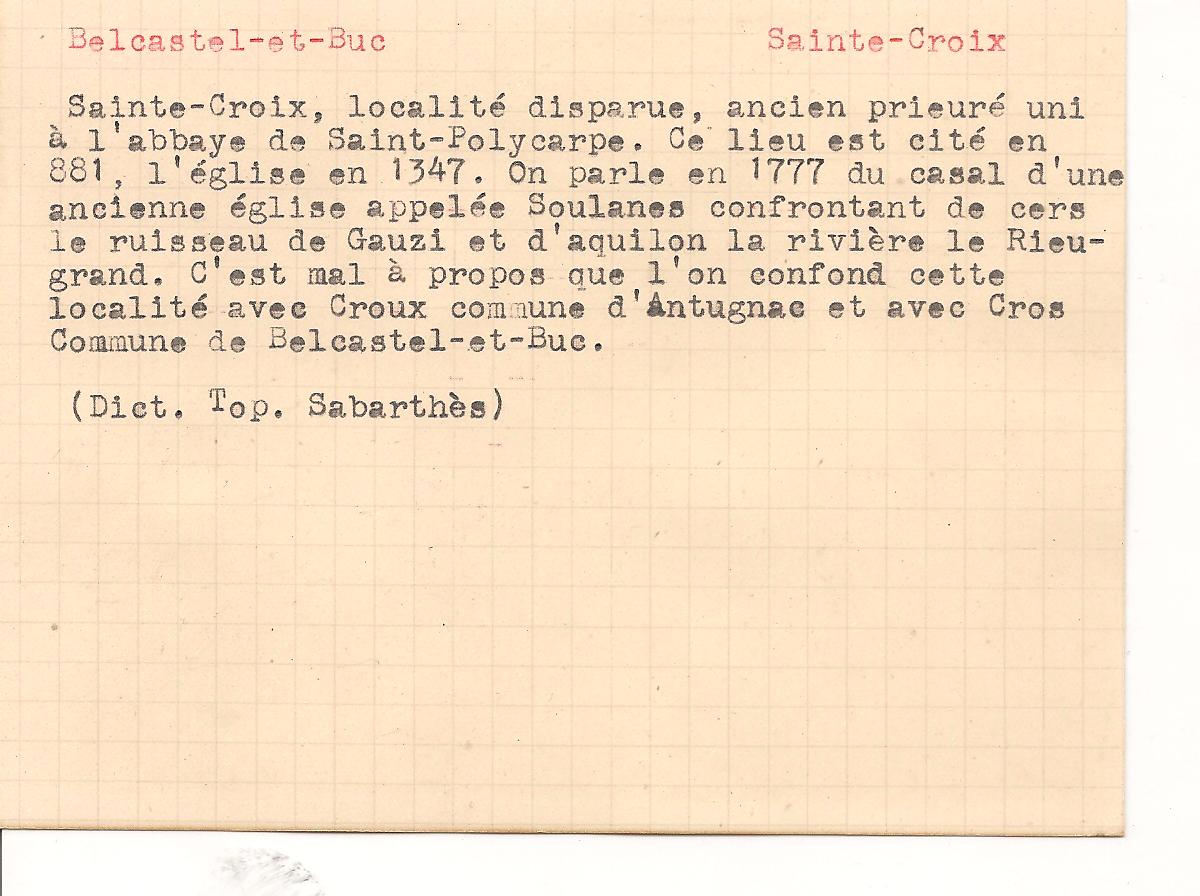 Belcastel-et-Buc Sainte-Croix
Sainte-Croix, localité disparue, ancien prieuré uni
à l'abbaye de Saint-Polycarpe. Ce lieu est cité en
881, l'église en 1347. On parle en 1777 du casal d'une
ancienne église appelée Soulanes confrontant de cers
le ruisseau de Gauzi et d'aquilon la rivière le Rieu-
grand. C'est mal à propos que l'on confond cette
localité avec Croux commune d'Antugnac et avec Cros
Commune de Belcastel-et-Buc.
(Dict. Top. Sabarthès)